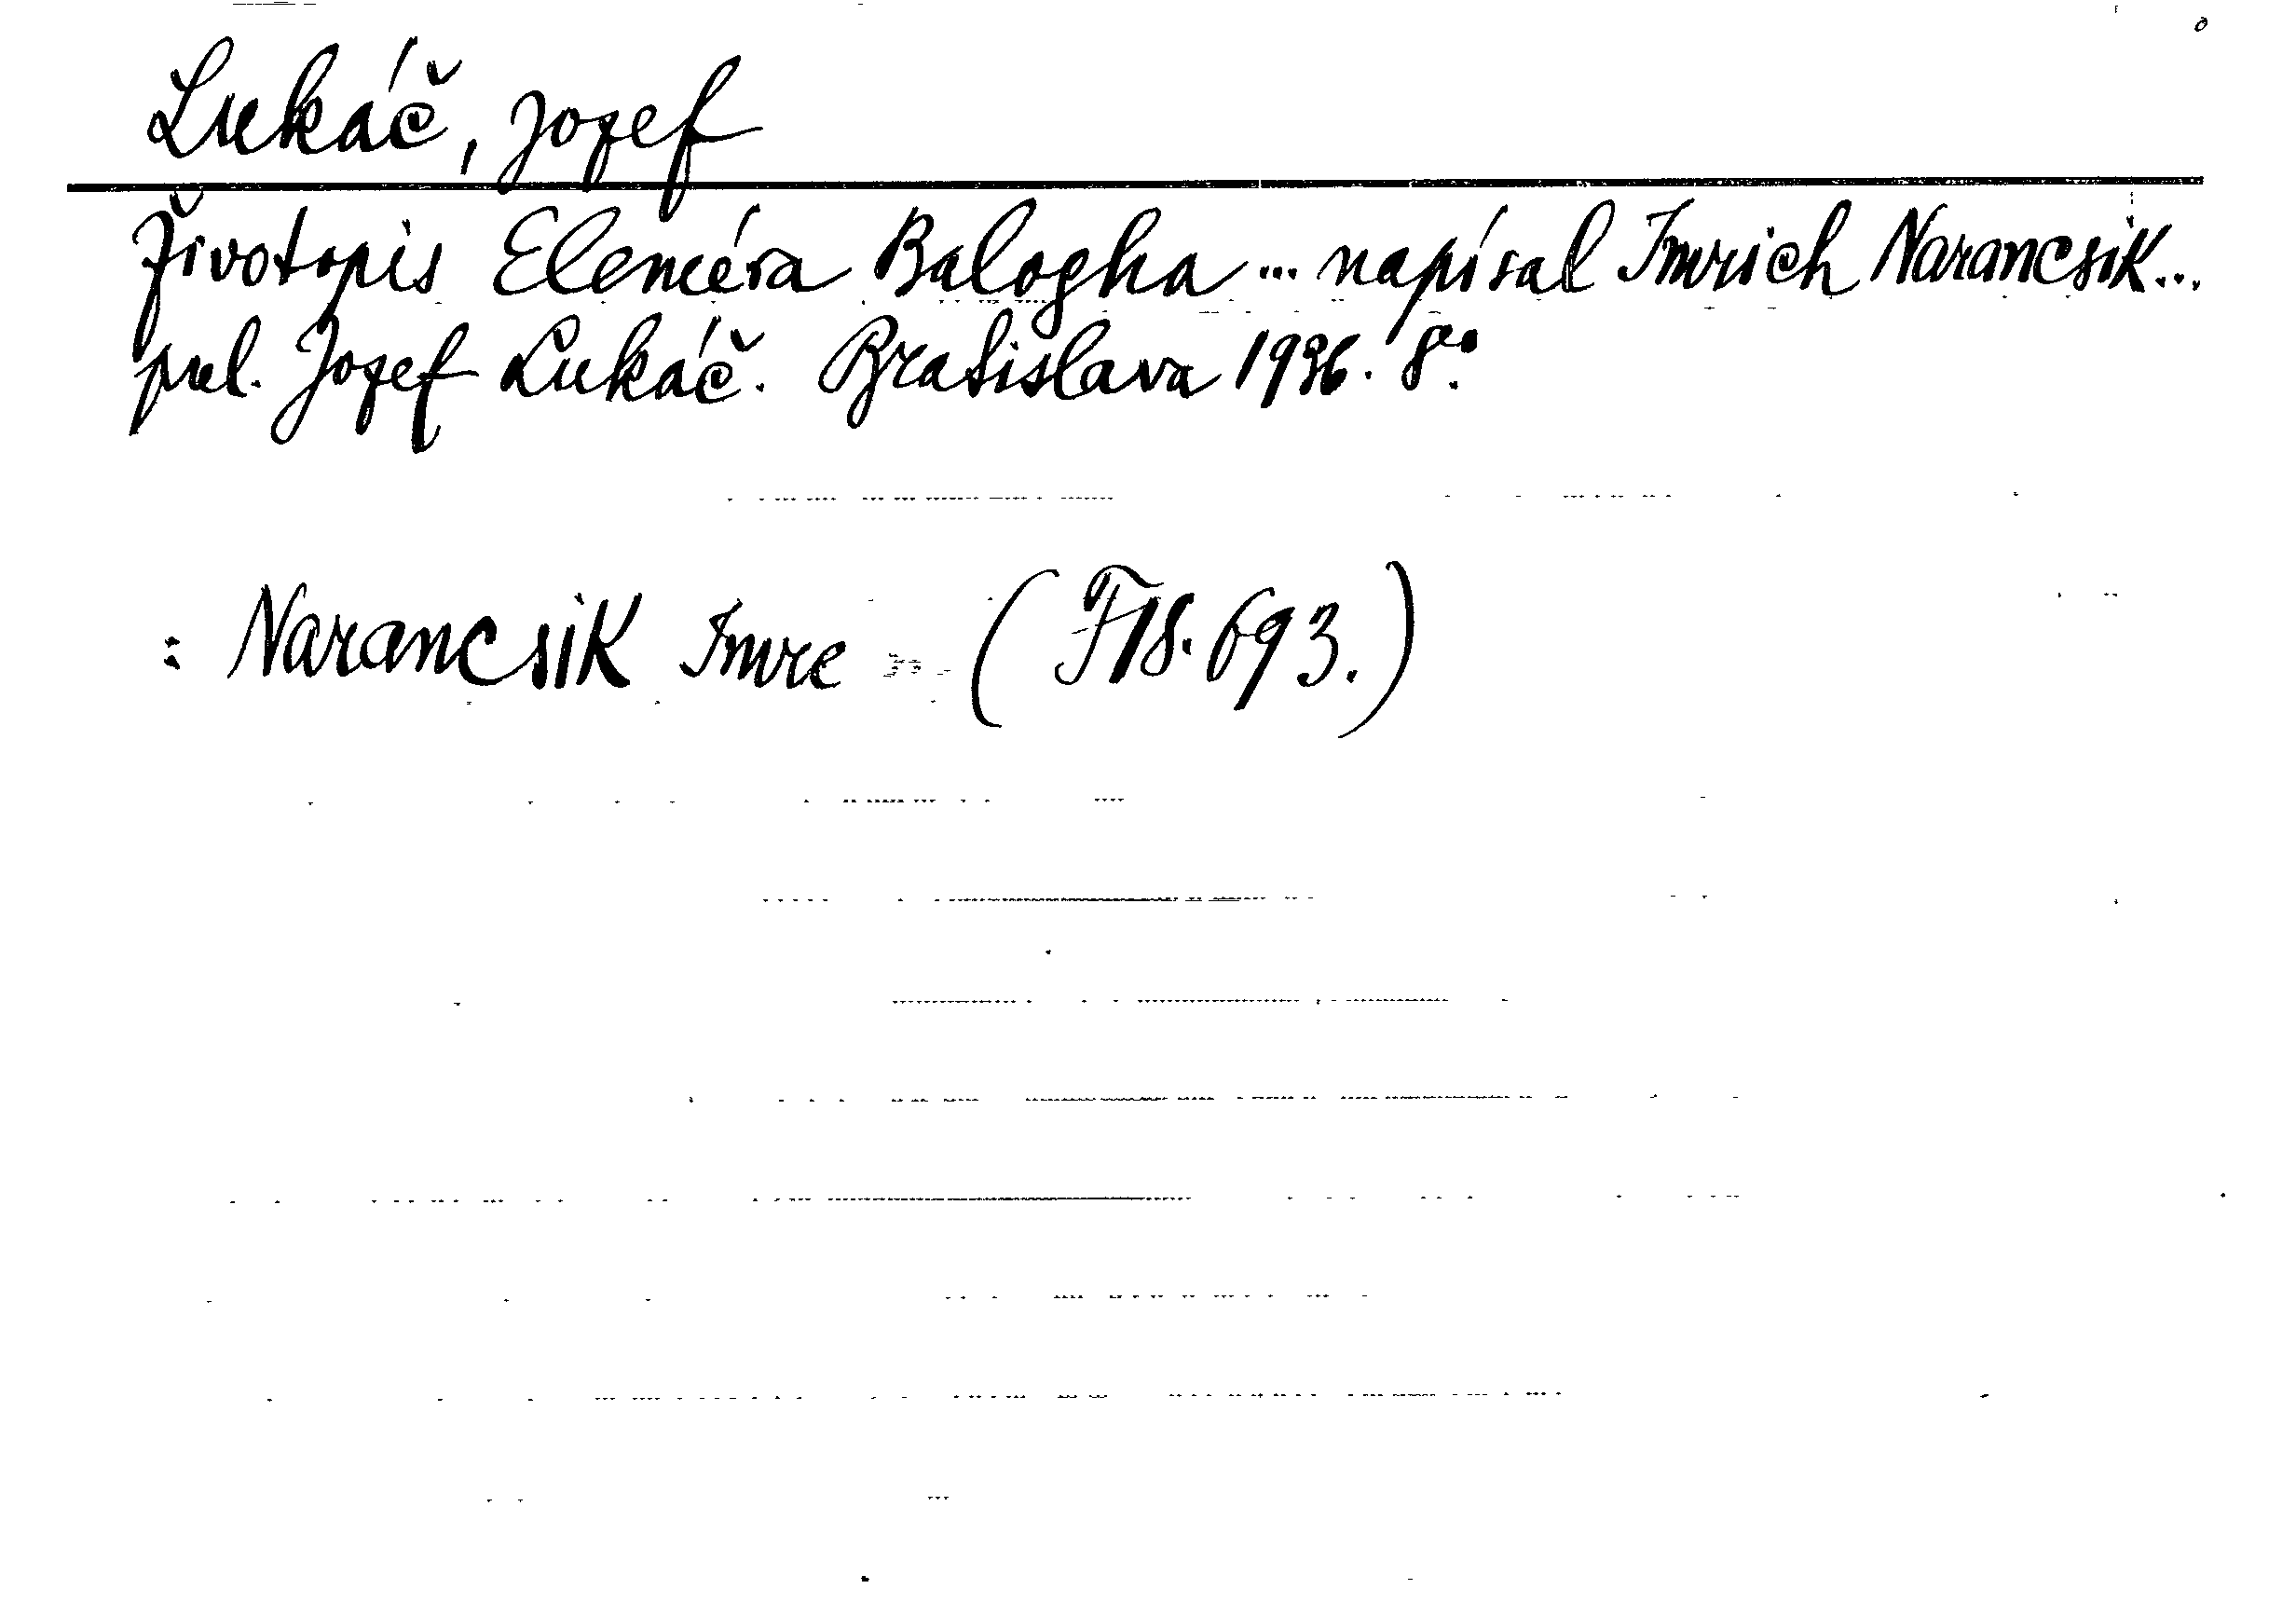 Lukáč, Jozef
Životopis Eleméra Balogha ... napísal Imrich Narancsik...
prel. Jozef Lukáč. Bratislava 1936. 8°.
: Narancsik Imre (F18.693.)